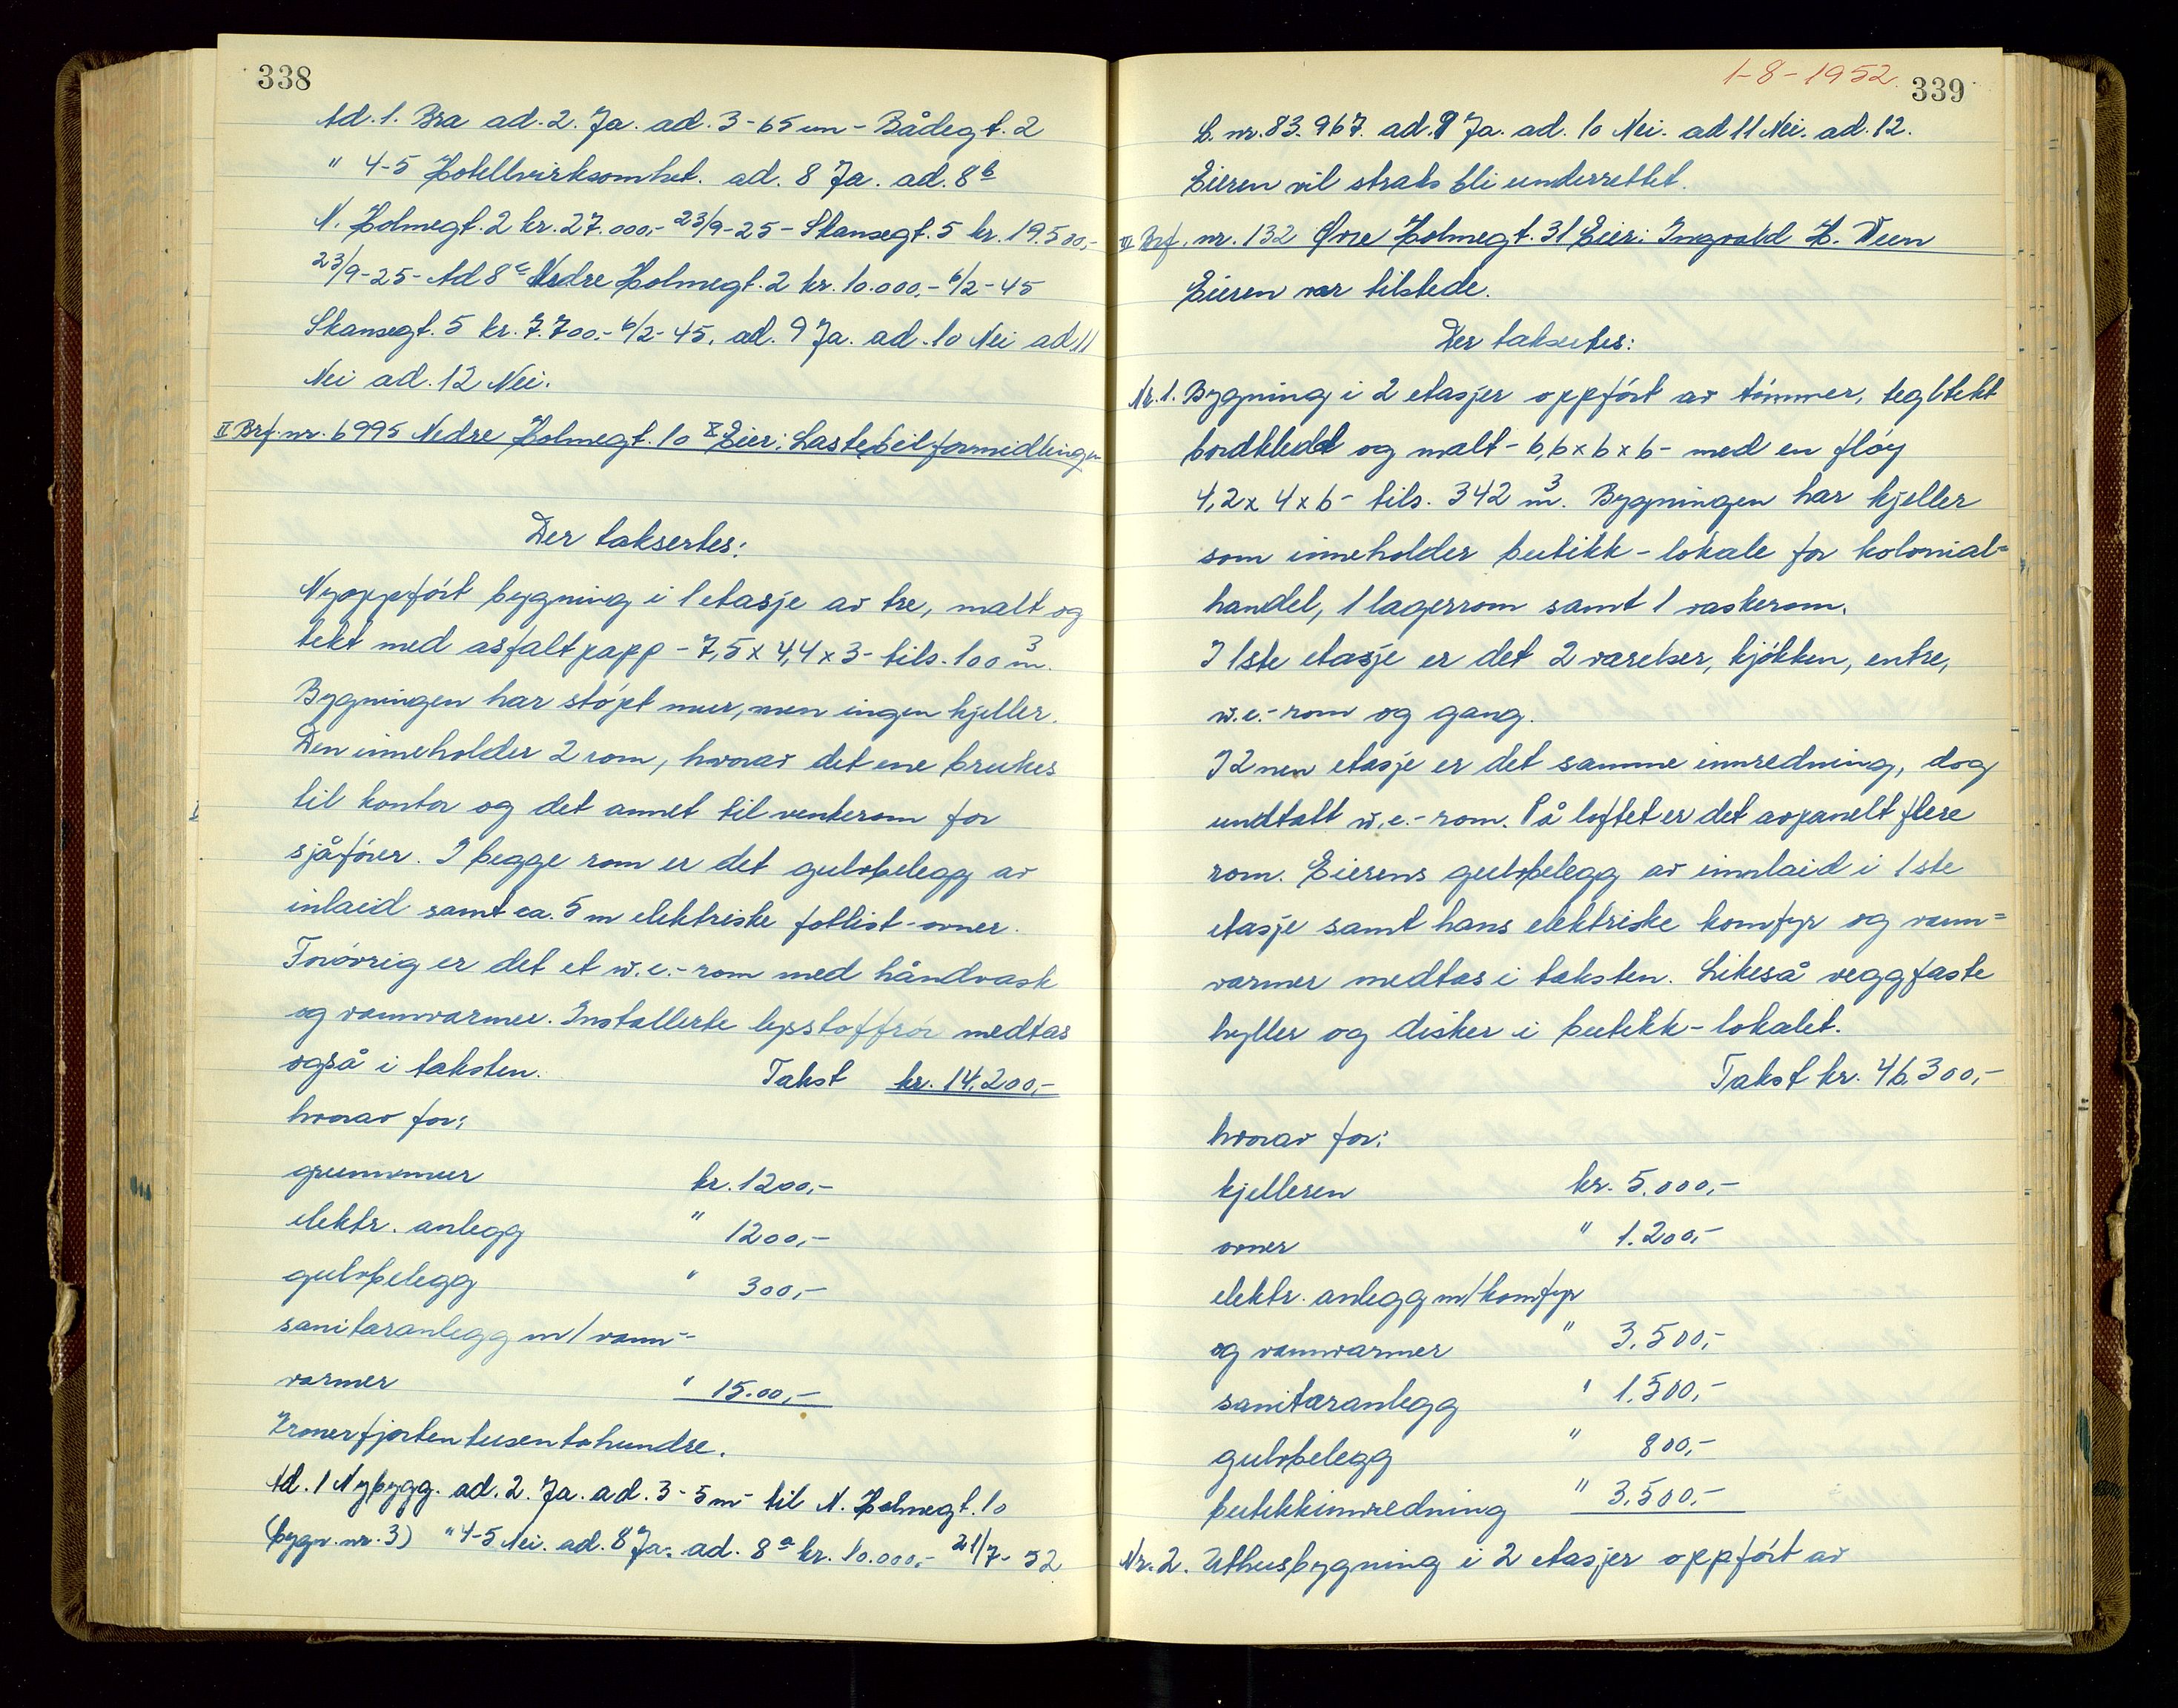 338
Ad. 1. Bra ad. 2. Ja. ad. 3 - 65 cm - Bådegt. 2
" 4-5 Hotellvirksomhet. ad. 8 Ja. ad. 8b
N. Holmegt. 2 kr. 27.000,- 23/9-25 - Skansegt. 5 kr. 19.500,-
23/9-25 - Ad 8c Nedre Holmegt. 2 kr. 10.000,- 6/2-45
Skansegt. 5 kr. 7.700.- 6/2-45. ad. 9 Ja. ad. 10 Nei ad 11
Nei ad. 12 Nei.
II Brf. nr. 6995 Nedre Holmegt. 10 x Eier: Lastebilformidlingen
Der taksertes:
Nyoppført bygning i 1 etasje av tre, malt og
tekt med asfaltpapp - 7,5 x 4,4 x 3 - tils. 100 m3.
Bygningen har støpt mur, men ingen kjeller.
Den inneholder 2 rom, hvorav det ene brukes
til kontor og det annet til venterom for
sjåfører. I begge rom er det gulvbelegg av
inlaid samt ca. 5 m elektriske fotlist-ovner.
Forøvrig er det et w.c.-rom med håndvask
og vannvarmer. Installerte lysstoffrør medtas
også i taksten. Takst kr. 14.200,-
hvorav for:
grunnmur kr. 1200,-
elektr. anlegg " 1200,-
gulvbelegg " 300,-
sanitæranlegg m/ vann-
varmer " 15.00,-
Kroner fjorten tusen to hundre.
Ad. 1 Nybygg. ad. 2. Ja. ad. 3 - 5 m - til N. Holmegt. 10
(bygn. nr. 3) " 4-5 Nei. ad. 8 Ja. ad. 8a kr. 10.000,- 21/7-52
1-8-1952.
339
L. nr. 83.967. ad. 9 Ja. ad. 10 Nei. ad 11 Nei. ad. 12.
Eieren vil straks bli underrettet.
III Brf. nr. 132 Øvre Holmegt. 31 Eier: Ingvald H. Veen
Eieren var tilstede.
Der taksertes:
Nr. 1. Bygning i 2 etasjer oppført av tømmer, tegltekt
bordkledt og malt - 6,6 x 6 x 6 - med en fløy
4,2 x 4 x 6 - tils. 342 m3. Bygningen har kjeller
som inneholder butikk-lokale for kolonial=
handel, 1 lagerrom samt 1 vaskerom.
I 1ste etasje er det 2 værelser, kjøkken, entre,
w.c.-rom og gang.
I 2nen etasje er det samme innredning, dog
undtatt w.c.-rom. På loftet er det avpanelt flere
rom. Eierens gulvbelegg av innlaid i 1ste
etasje samt hans elektriske komfyr og vann=
varmer medtas i taksten. Likeså veggfaste
hyller og disker i butikk-lokalet.
Takst kr. 46.300,-
hvorav for:
kjelleren kr. 5.000,-
ovner " 1.200,-
elektr. anlegg m/komfyr
og vannvarmer " 3.500,-
sanitæranlegg " 1.500,-
gulvbelegg " 800,-
butikkinnredning " 3.500,-
Nr. 2. Uthusbygning i 2 etasjer oppført av